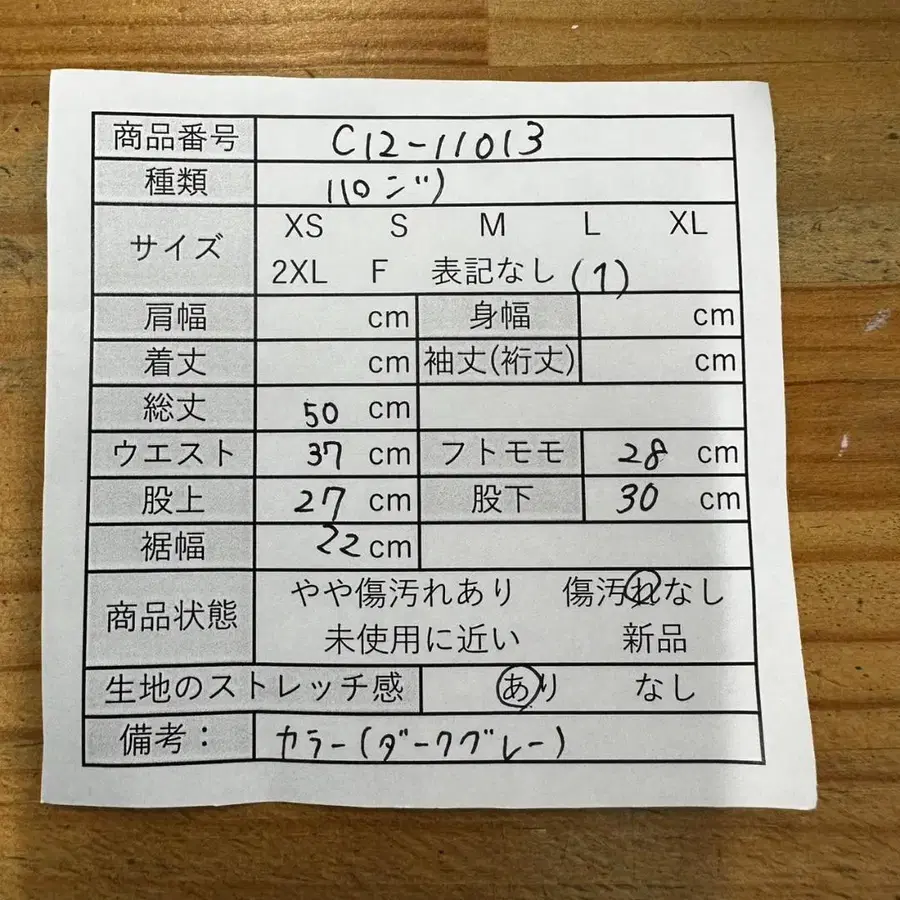 商品番号 C12-11013
種類 パンツ
サイズ XS S M L XL
2XL F 表記なし (1)
肩幅 cm 身幅 cm
着丈 cm 袖丈(裄丈) cm
総丈 50 cm
ウエスト 37 cm フトモモ 28 cm
股上 27 cm 股下 30 cm
裾幅 22 cm
商品状態 やや傷汚れあり 傷汚れなし
未使用に近い 新品
生地のストレッチ感 あり なし
備考: カラー(ダークグレー)